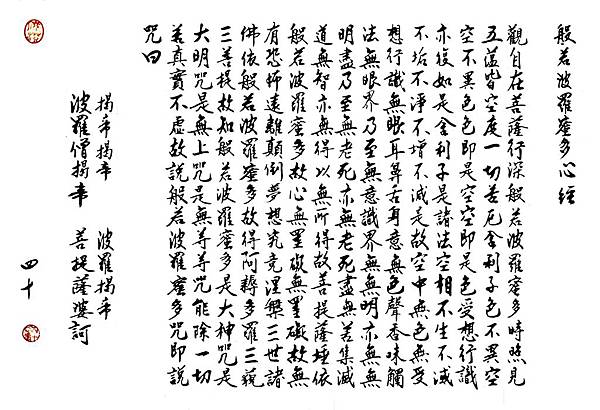 般若波羅蜜多心經
觀自在菩薩行深般若波羅蜜多時照見
五蘊皆空度一切苦厄舍利子色不異空
空不異色色即是空空即是色受想行識
亦復如是舍利子是諸法空相不生不滅
不垢不淨不增不減是故空中無色無受
想行識無眼耳鼻舌身意無色聲香味觸
法無眼界乃至無意識界無無明亦無無
明盡乃至無老死亦無老死盡無苦集滅
道無智亦無得以無所得故菩提薩埵依
般若波羅蜜多故心無罣礙無罣礙故無
有恐怖遠離顛倒夢想究竟涅槃三世諸
佛依般若波羅蜜多故得阿耨多羅三藐
三菩提故知般若波羅蜜多是大神咒是
大明咒是無上咒是無等等咒能除一切
苦真實不虛故說般若波羅蜜多咒即說
咒曰
揭帝揭帝 波羅揭帝
波羅僧揭帝 菩提薩婆訶
四十